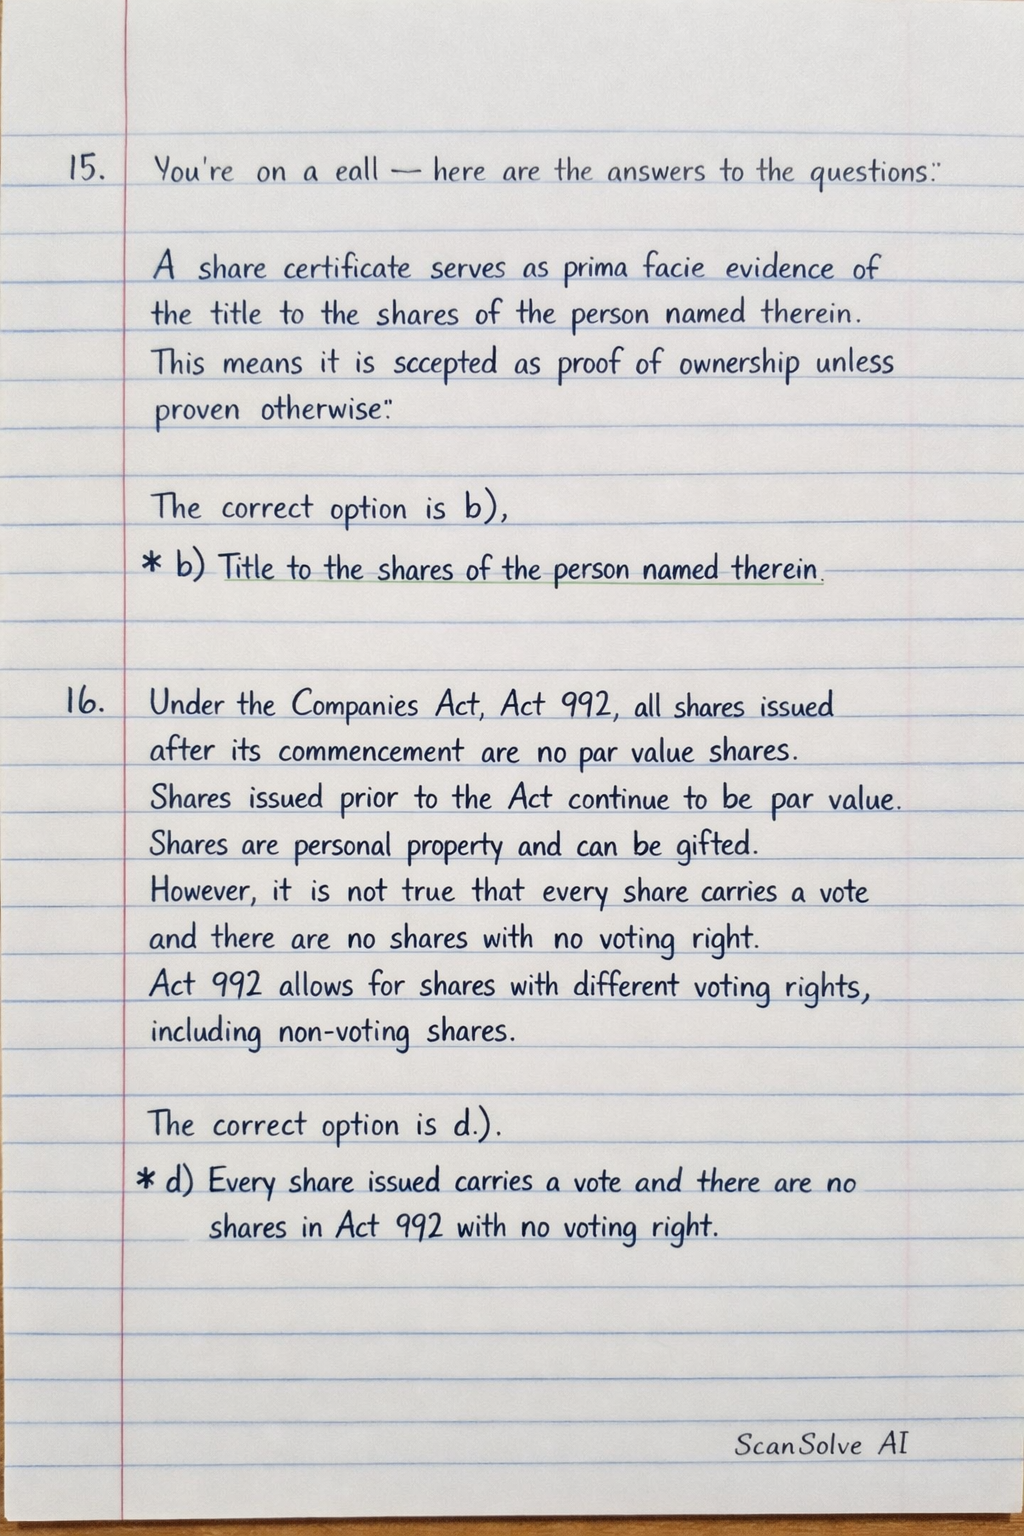 15. You're on a eall — here are the answers to the questions:"
A share certificate serves as prima facie evidence of
the title to the shares of the person named therein.
This means it is sccepted as proof of ownership unless
proven otherwise:"
The correct option is b),
* b) Title to the shares of the person named therein.
16. Under the Companies Act, Act 992, all shares issued
after its commencement are no par value shares.
Shares issued prior to the Act continue to be par value.
Shares are personal property and can be gifted.
However, it is not true that every share carries a vote
and there are no shares with no voting right.
Act 992 allows for shares with different voting rights,
including non-voting shares.
The correct option is d.).
* d) Every share issued carries a vote and there are no
shares in Act 992 with no voting right.
ScanSolve AI